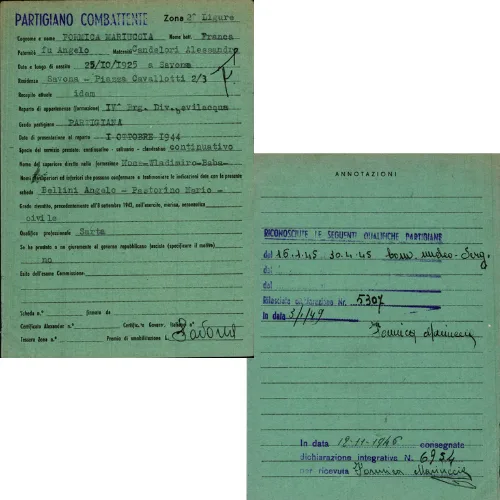 PARTIGIANO COMBATTENTE Zona 2° Ligure
Cognome e nome FORMICA MARIUCCIA Nome batt. Franca
Paternità fu Angelo Maternità Candelori Alessandra
Data e luogo di nascita 25/10/1925 a Savona
Residenza Savona - Piazza Cavallotti 2/3
Recapito attuale idem
Reparto di appartenenza (formazione) IV° Brg. Div. Bevilacqua
Grado partigiano PARTIGIANA
Data di presentazione al reparto I OTTOBRE 1944
Specie del servizio prestato: continuativo - saltuario - clandestino continuativo
Nome del superiore diretto nella formazione
Nomi partigiani ed inferiori che possano confermare e testimoniare le indicazioni date con la presente
scheda Bellini Angelo - Pastorino Mario -
Grado rivestito, precedentemente all'8 settembre 1943, nell'esercito, marina, aeronautica
civile
Qualifica professionale Sarta
Se ha prestato o no giuramento al governo repubblicano (escluso (specificare il motivo)
no
Esito dell'esame Commissione
Scheda n.° firmato da
Certificato Alexander n.° Certificato Govern. Italiano n.°
Tessera Zona n.° Premio di smobilitazione L.
ANNOTAZIONI
RICONOSCIUTE LE SEGUENTI QUALIFICHE PARTIGIANE
dal 16.1.45 30.4.45 Com. nucleo - Serg.
dal
dal
Rilasciata dichiarazione Nr. 5307
In data 3/1/49
Formica Mariuccia
In data 12-11-1946 consegnate
dichiarazione integrativa N. 6954
per ricevuta Formica Mariuccia